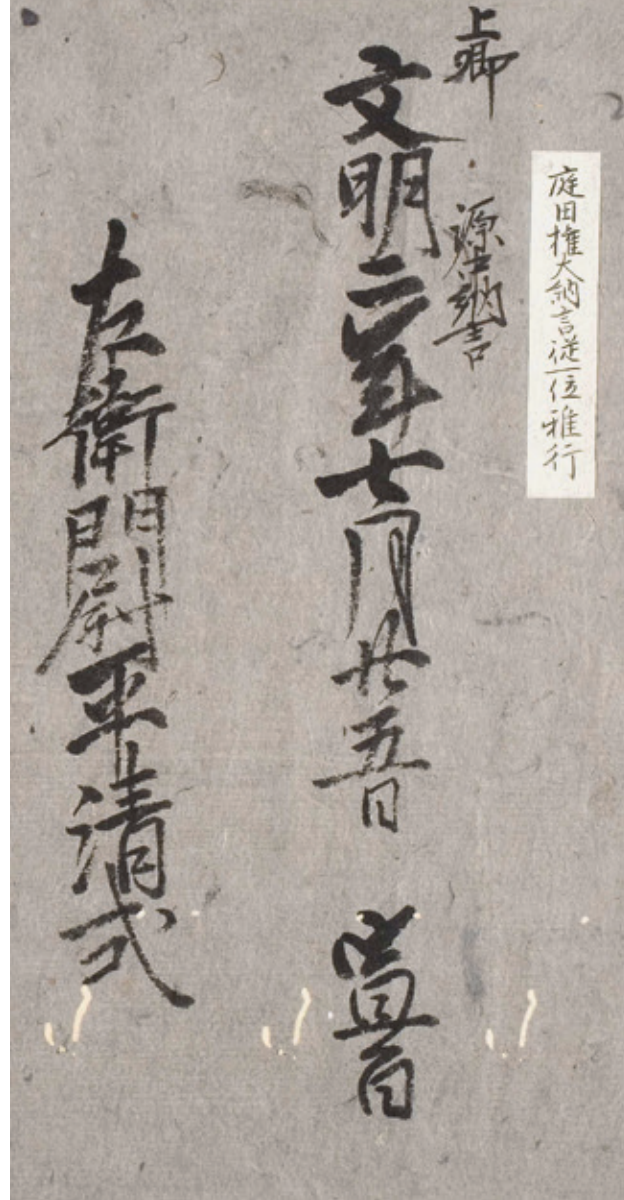 庭田権大納言従一位雅行
上卿 源中納言
文明二年七月廿五日 宣旨
左衛門尉平清式